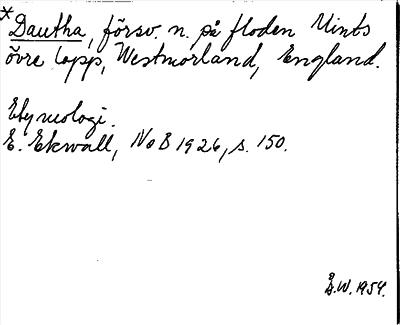 *Dautha, försv. n. på floden Mints
övre lopp, Westmorland, England.
Etymologi.
E. Ekwall, NoB 1926, s. 150.
Å.W. 1954.